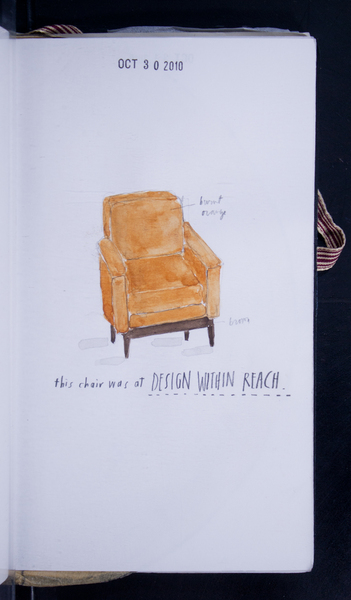 OCT 30 2010
burnt
orange
brown
this chair was at DESIGN WITHIN REACH.